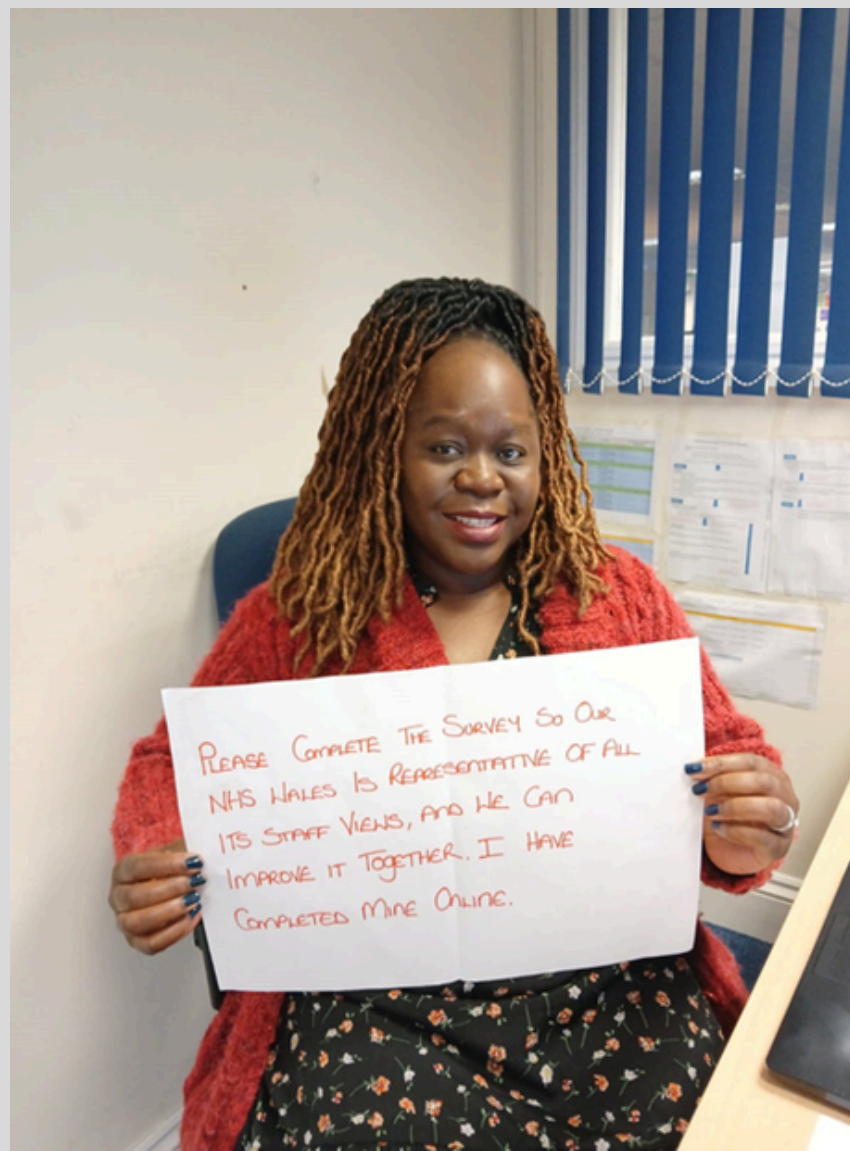 PLEASE COMPLETE THE SURVEY SO OUR
NHS WALES IS REPRESENTATIVE OF ALL
ITS STAFF VIEWS, AND WE CAN
IMPROVE IT TOGETHER. I HAVE
COMPLETED MINE ONLINE.